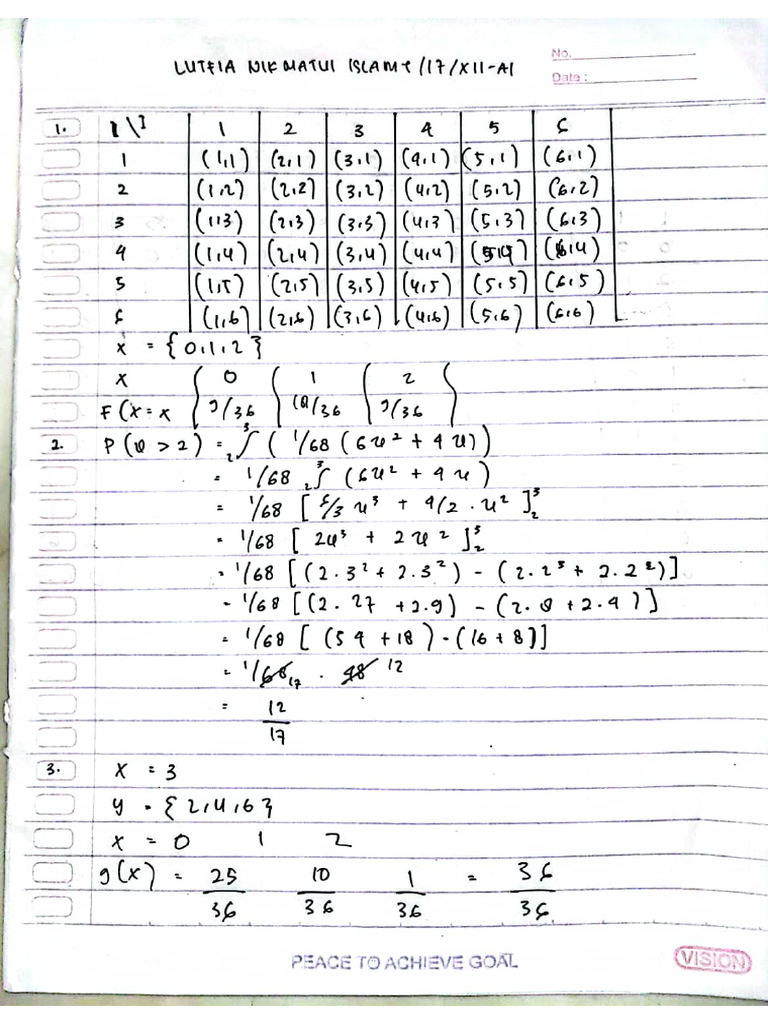 No.
LUTFIA NIKMATUL ISLAMI /17/XII-A1
Date :
1. 1\1 1 2 3 4 5 6
1 (1,1) (2,1) (3,1) (4,1) (5,1) (6,1)
2 (1,2) (2,2) (3,2) (4,2) (5,2) (6,2)
3 (1,3) (2,3) (3,3) (4,3) (5,3) (6,3)
4 (1,4) (2,4) (3,4) (4,4) (5,4) (6,4)
5 (1,5) (2,5) (3,5) (4,5) (5,5) (6,5)
6 (1,6) (2,6) (3,6) (4,6) (5,6) (6,6)
x = {0,1,2}
x 0 1 2
F(x=x 9/36 18/36 9/36
2. P(U > 2) = ₂∫³ ( 1/68 (6u² + 4u))
= 1/68 ₂∫³ (6u² + 4u)
= 1/68 [ 6/3 u³ + 4/2 . u² ]³₂
= 1/68 [ 2u³ + 2u² ]³₂
= 1/68 [(2.3² + 2.3²) - (2.2³ + 2.2²)]
= 1/68 [(2.27 + 2.9) - (2.8 + 2.4)]
= 1/68 [ (54 + 18) - (16 + 8)]
= 1/68 17 . 48 12
= 12
17
3. x = 3
y = {2,4,6}
x = 0 1 2
g(x) = 25 10 1 = 36
36 36 36 36
PEACE TO ACHIEVE GOAL
VISION